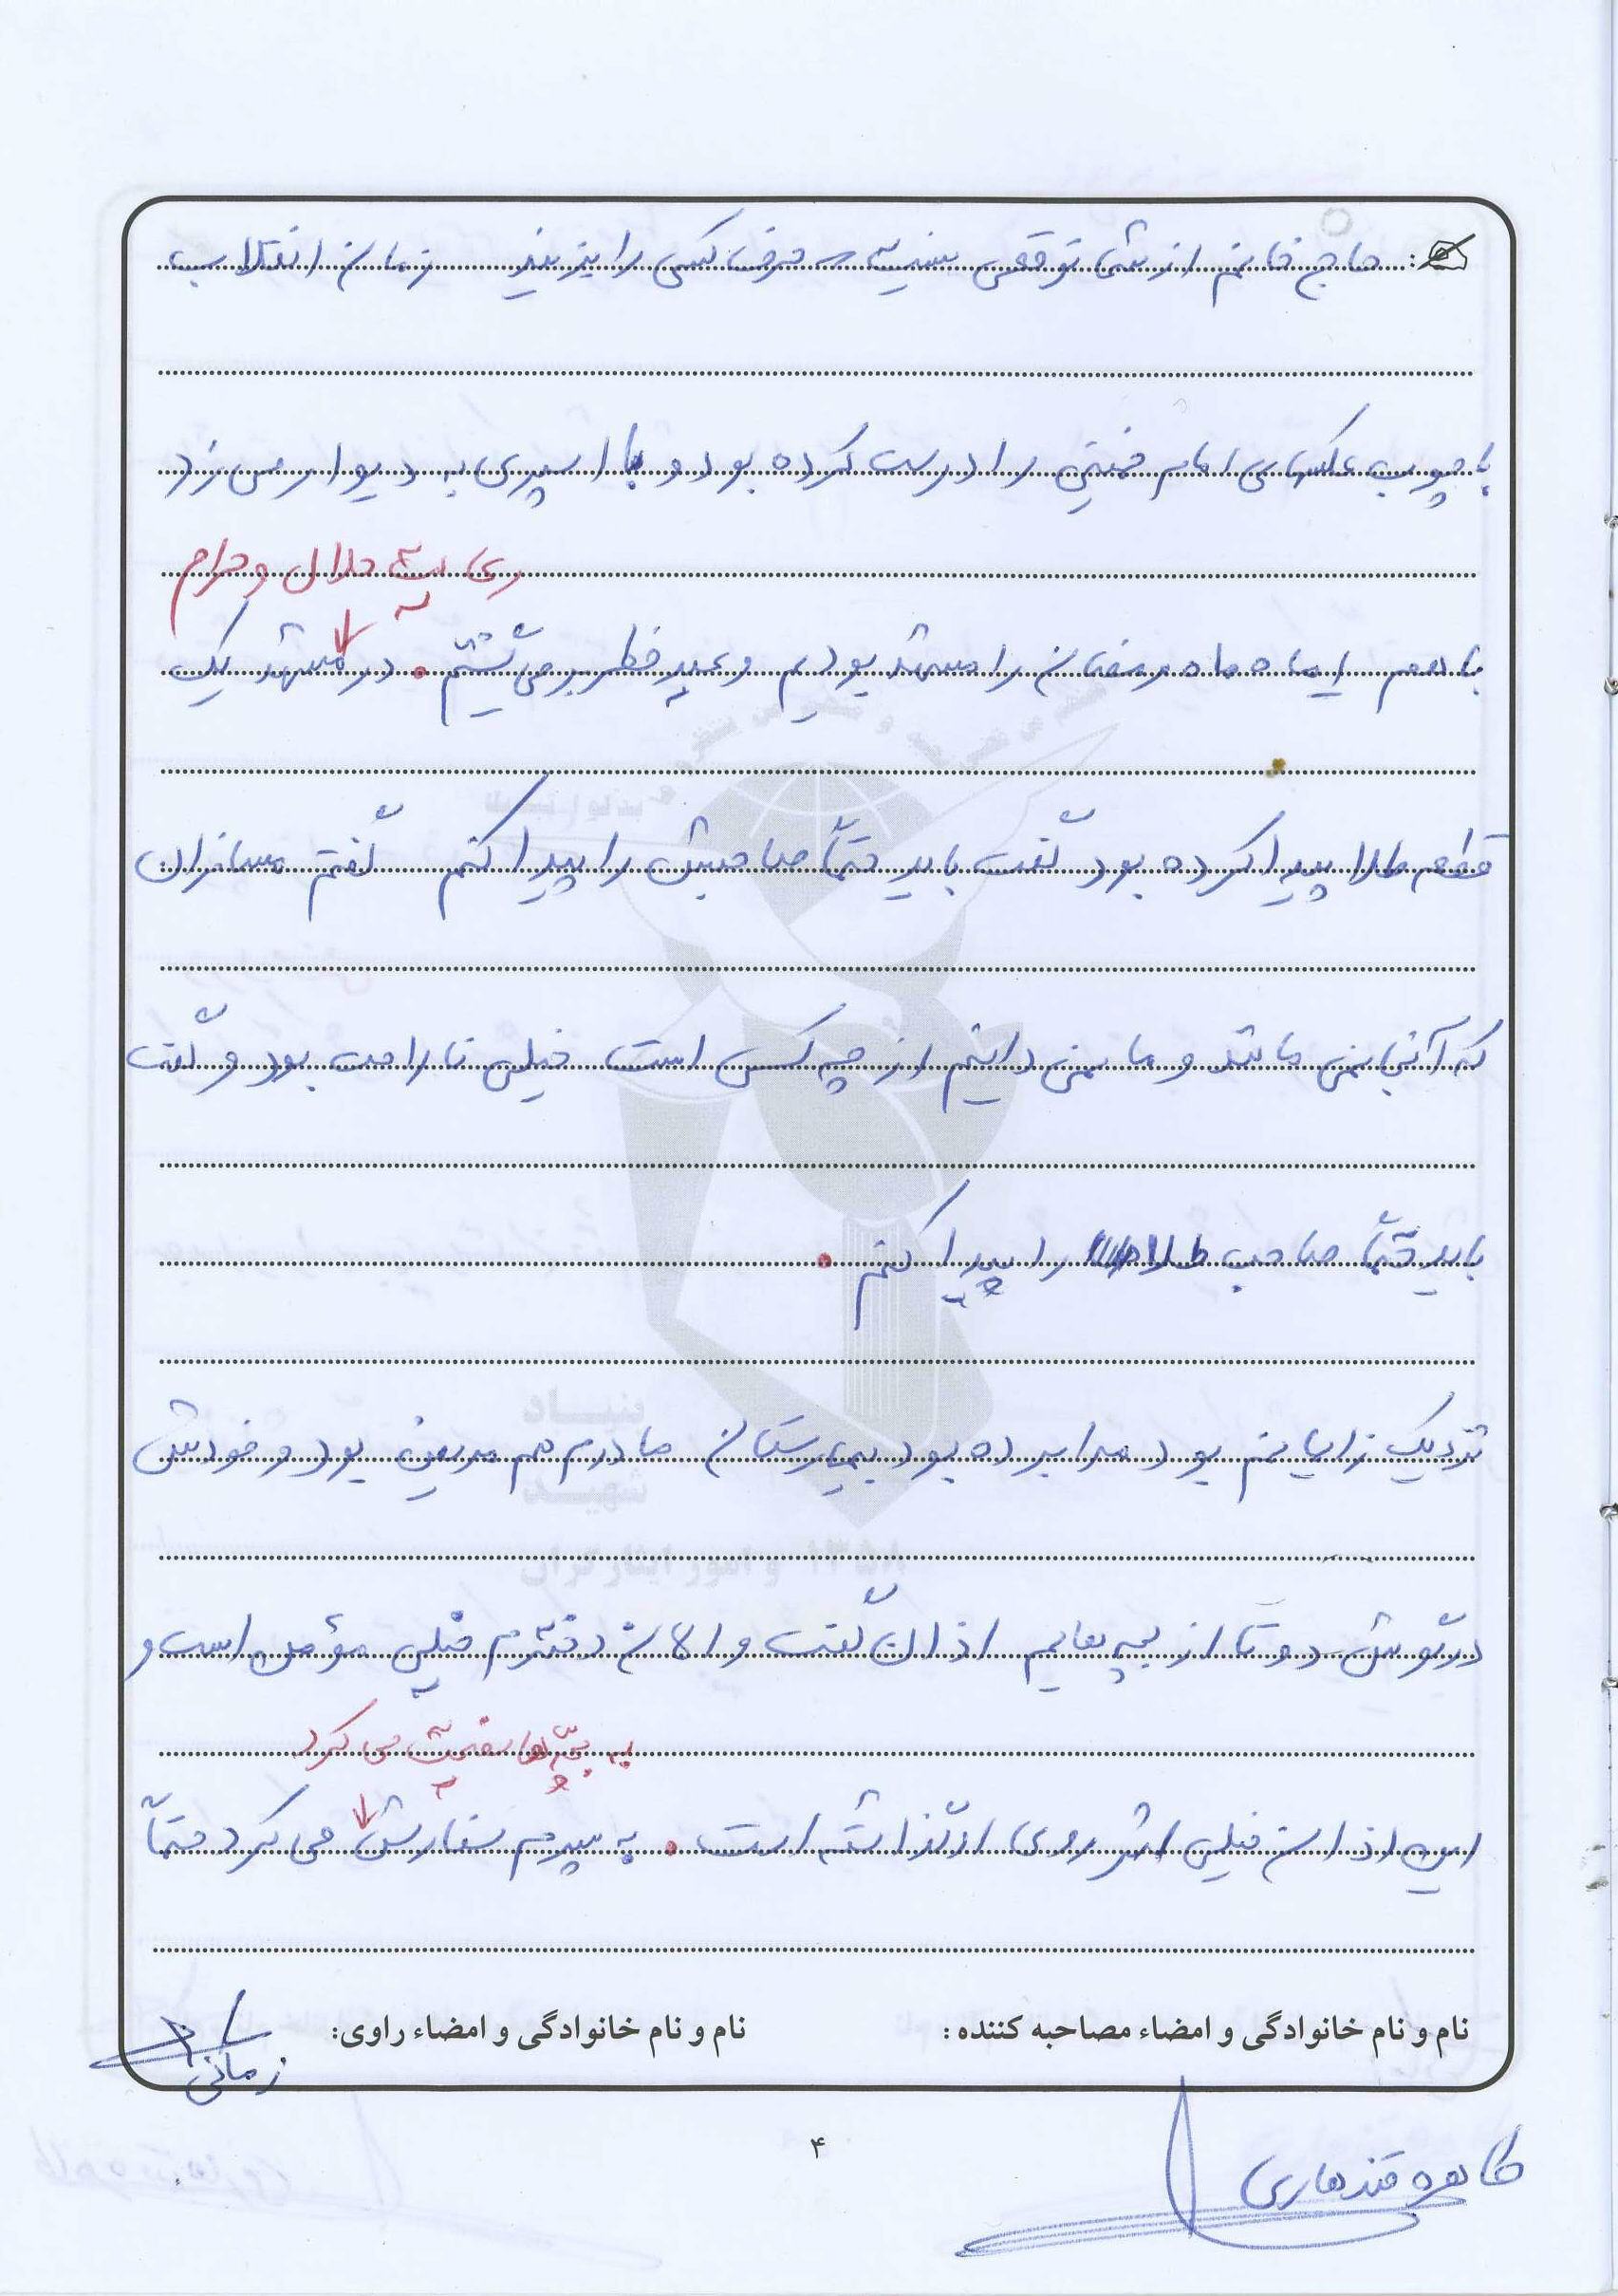 حاج خانم از شما توقعی نیست حرف کسی را بزنید زمان انقلاب
با چوب عکسهای امام خمینی را درست کرده بود و با اسپری به دیوار می زد
رعایت حلال و حرام
با هم ایام ماه رمضان را مشهد بودیم و عید فطر بر می گشتیم. در مشهد یک
قطعه طلا پیدا کرده بود گفت باید حتماً صاحبش را پیدا کنم گفتم مسافران
که آنجا نمی مانند و ما نمی دانیم از چه کسی است خیلی ناراحت بود و گفت
باید حتماً صاحب طلا را پیدا کنم.
نزدیک زایمانم بود مرا برده بود بیمارستان مادرم هم مریض بود و خودش
در گوش دو تا از بچه هایم اذان گفت و الان دخترم خیلی مؤمن است و
به بچه ها نصیحت می کرد
این اذان خیلی اثر روی او گذاشته است. به پسرم سفارش می کرد حتماً
نام و نام خانوادگی و امضاء مصاحبه کننده :
نام و نام خانوادگی و امضاء راوی:
زمانی
طاهره قندهاری
۴
بنیاد
شهید
و امور ایثارگران
۱۳۵۸